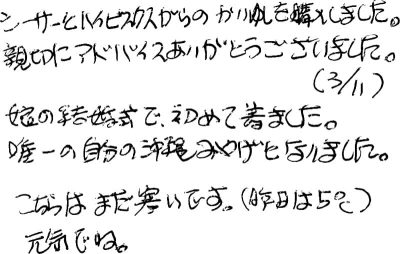 シーサーとハイビスカスがらのかりゆしを購入しました。
親切にアドバイスありがとうございました。
(3/11)
姪の結婚式で、初めて着ました。
唯一の自分の沖縄みやげとなりました。
こちらはまだ寒いです。(昨日は5℃)
元気でね。